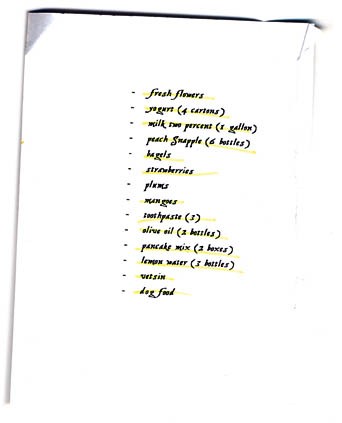 - fresh flowers
- yogurt (4 cartons)
- milk two percent (1 gallon)
- peach Snapple (6 bottles)
- bagels
- strawberries
- plums
- mangoes
- toothpaste (3)
- olive oil (2 bottles)
- pancake mix (2 boxes)
- lemon water (3 bottles)
- vetsin
- dog food